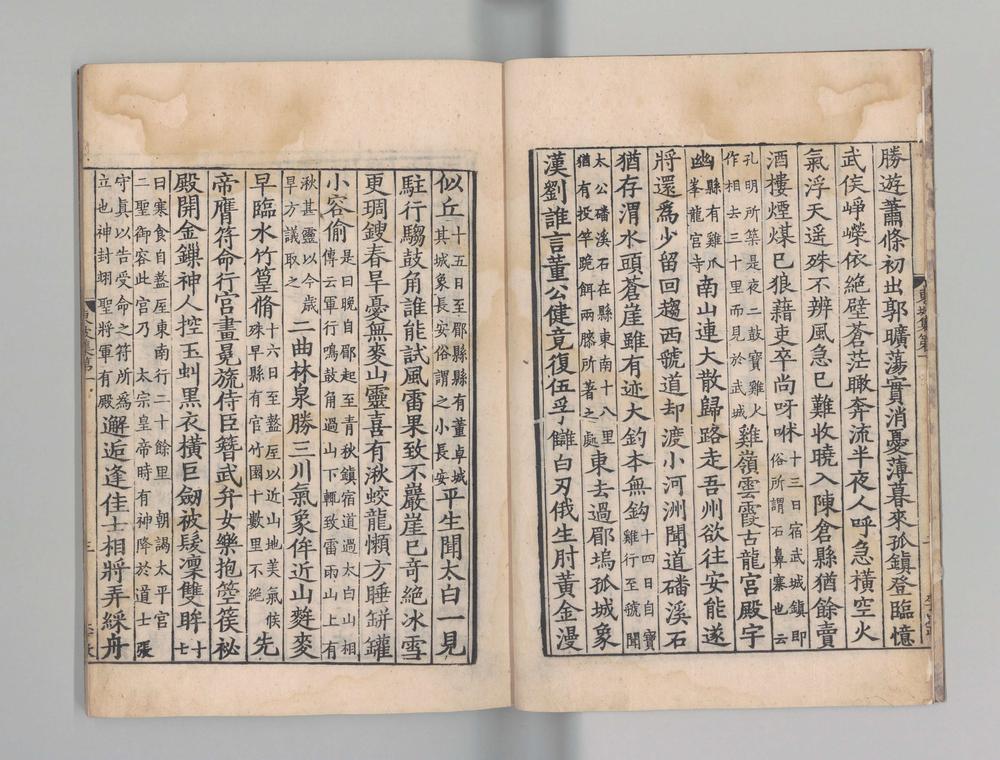 勝遊蕭條初出郭曠蕩實消憂薄暮來孤鎮登臨憶
武侯崢嶸依絕壁蒼茫瞰奔流半夜人呼急橫空火
氣浮天遥殊不辨風急已難收曉入陳倉縣猶餘賣
酒樓煙煤已狼藉吏卒尚呀咻十三日宿武城鎮即俗所謂石鼻寨也云
孔明所築是夜二鼓寶雞火作相去三十里而見於武城雞嶺雲霞古龍宮殿宇
幽縣有雞爪峯龍宮寺南山連大散歸路走吾州欲往安能遂
將還爲少留回趨西虢道却渡小河洲聞道磻溪石
猶存渭水頭蒼崖雖有迹大釣本無鈎十四日自寶雞行至虢聞
太公磻溪石在縣東南十八里猶有投竿跪餌兩膝所著之處東去過郿塢孤城象
漢劉誰言董公健竟復伍孚讎白刃俄生肘黃金漫
似丘十五日至郿縣縣有董卓城其城象長安俗謂之小長安平生聞太白一見
駐行騶鼓角誰能試風雷果致不巖崖已奇絶冰雪
更琱鎪春旱憂無麥山靈喜有湫蛟龍懶方睡缾罐
小容偷是日晚自郿起至青秋鎮宿道過太白山相傳云軍行鳴鼓角過山下輒致雷雨山上有
湫甚靈以今歲旱方議取之二曲林泉勝三川氣象侔近山麰麥
早臨水竹篁脩十六日至盩厔以近山地美氣候殊早縣有官竹園十數里不絶先
帝膺符命行宮畫冕旒侍臣簪武弁女樂抱箜篌祕
殿開金鏁神人控玉虯黑衣橫巨劒被髮凜雙眸十七
日寒食自盩厔東南行二十餘里朝謁太平宮二聖御容此宮乃太宗皇帝時有神降於道士張
守真以告受命之符所爲立也神封翊聖將軍有殿邂逅逢佳士相將弄綵舟